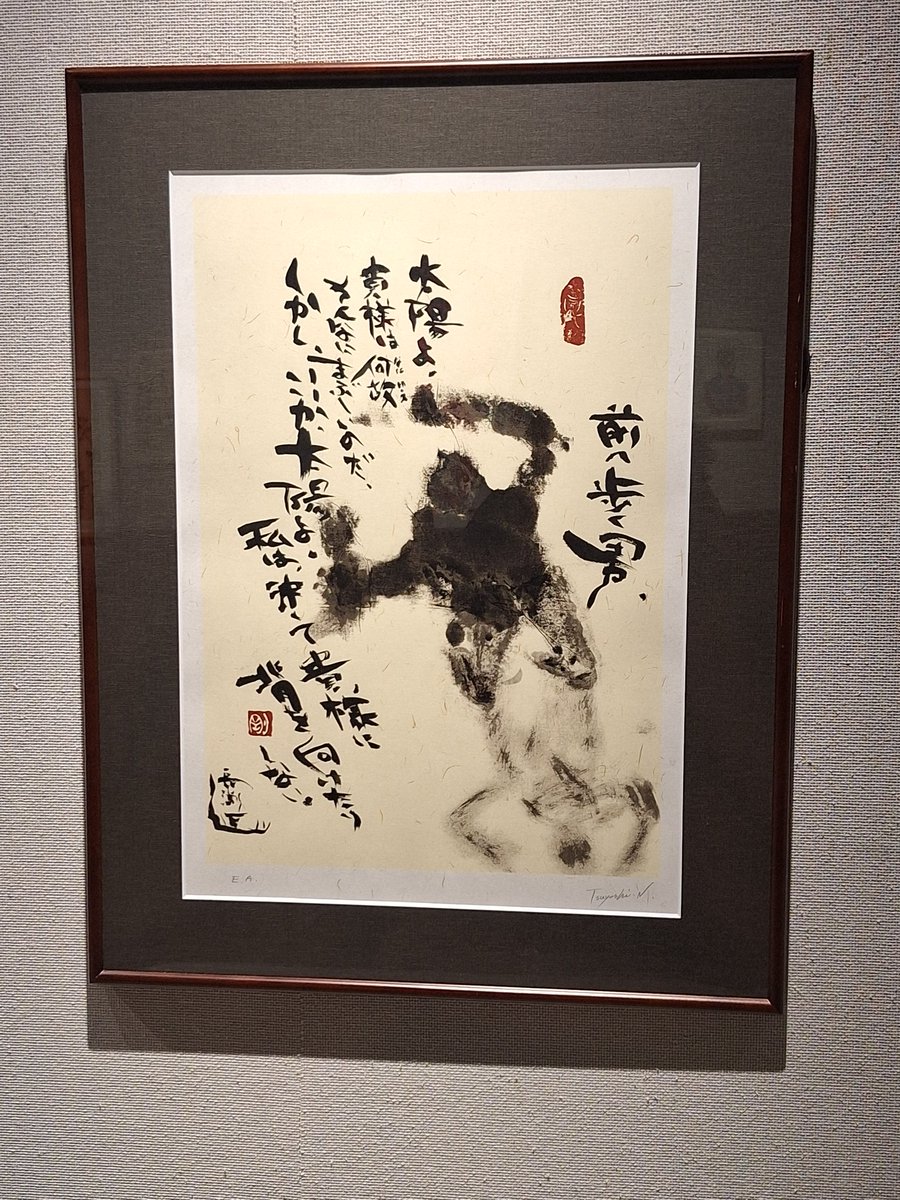 前へ歩く男。
太陽よ、
貴様は何故
そんなにまぶしいのだ、
しかしいいか、太陽よ、
私は、決して貴様に
背を向けたり
しない。
剛
長渕
E.A.
Tsuyoshi.N.